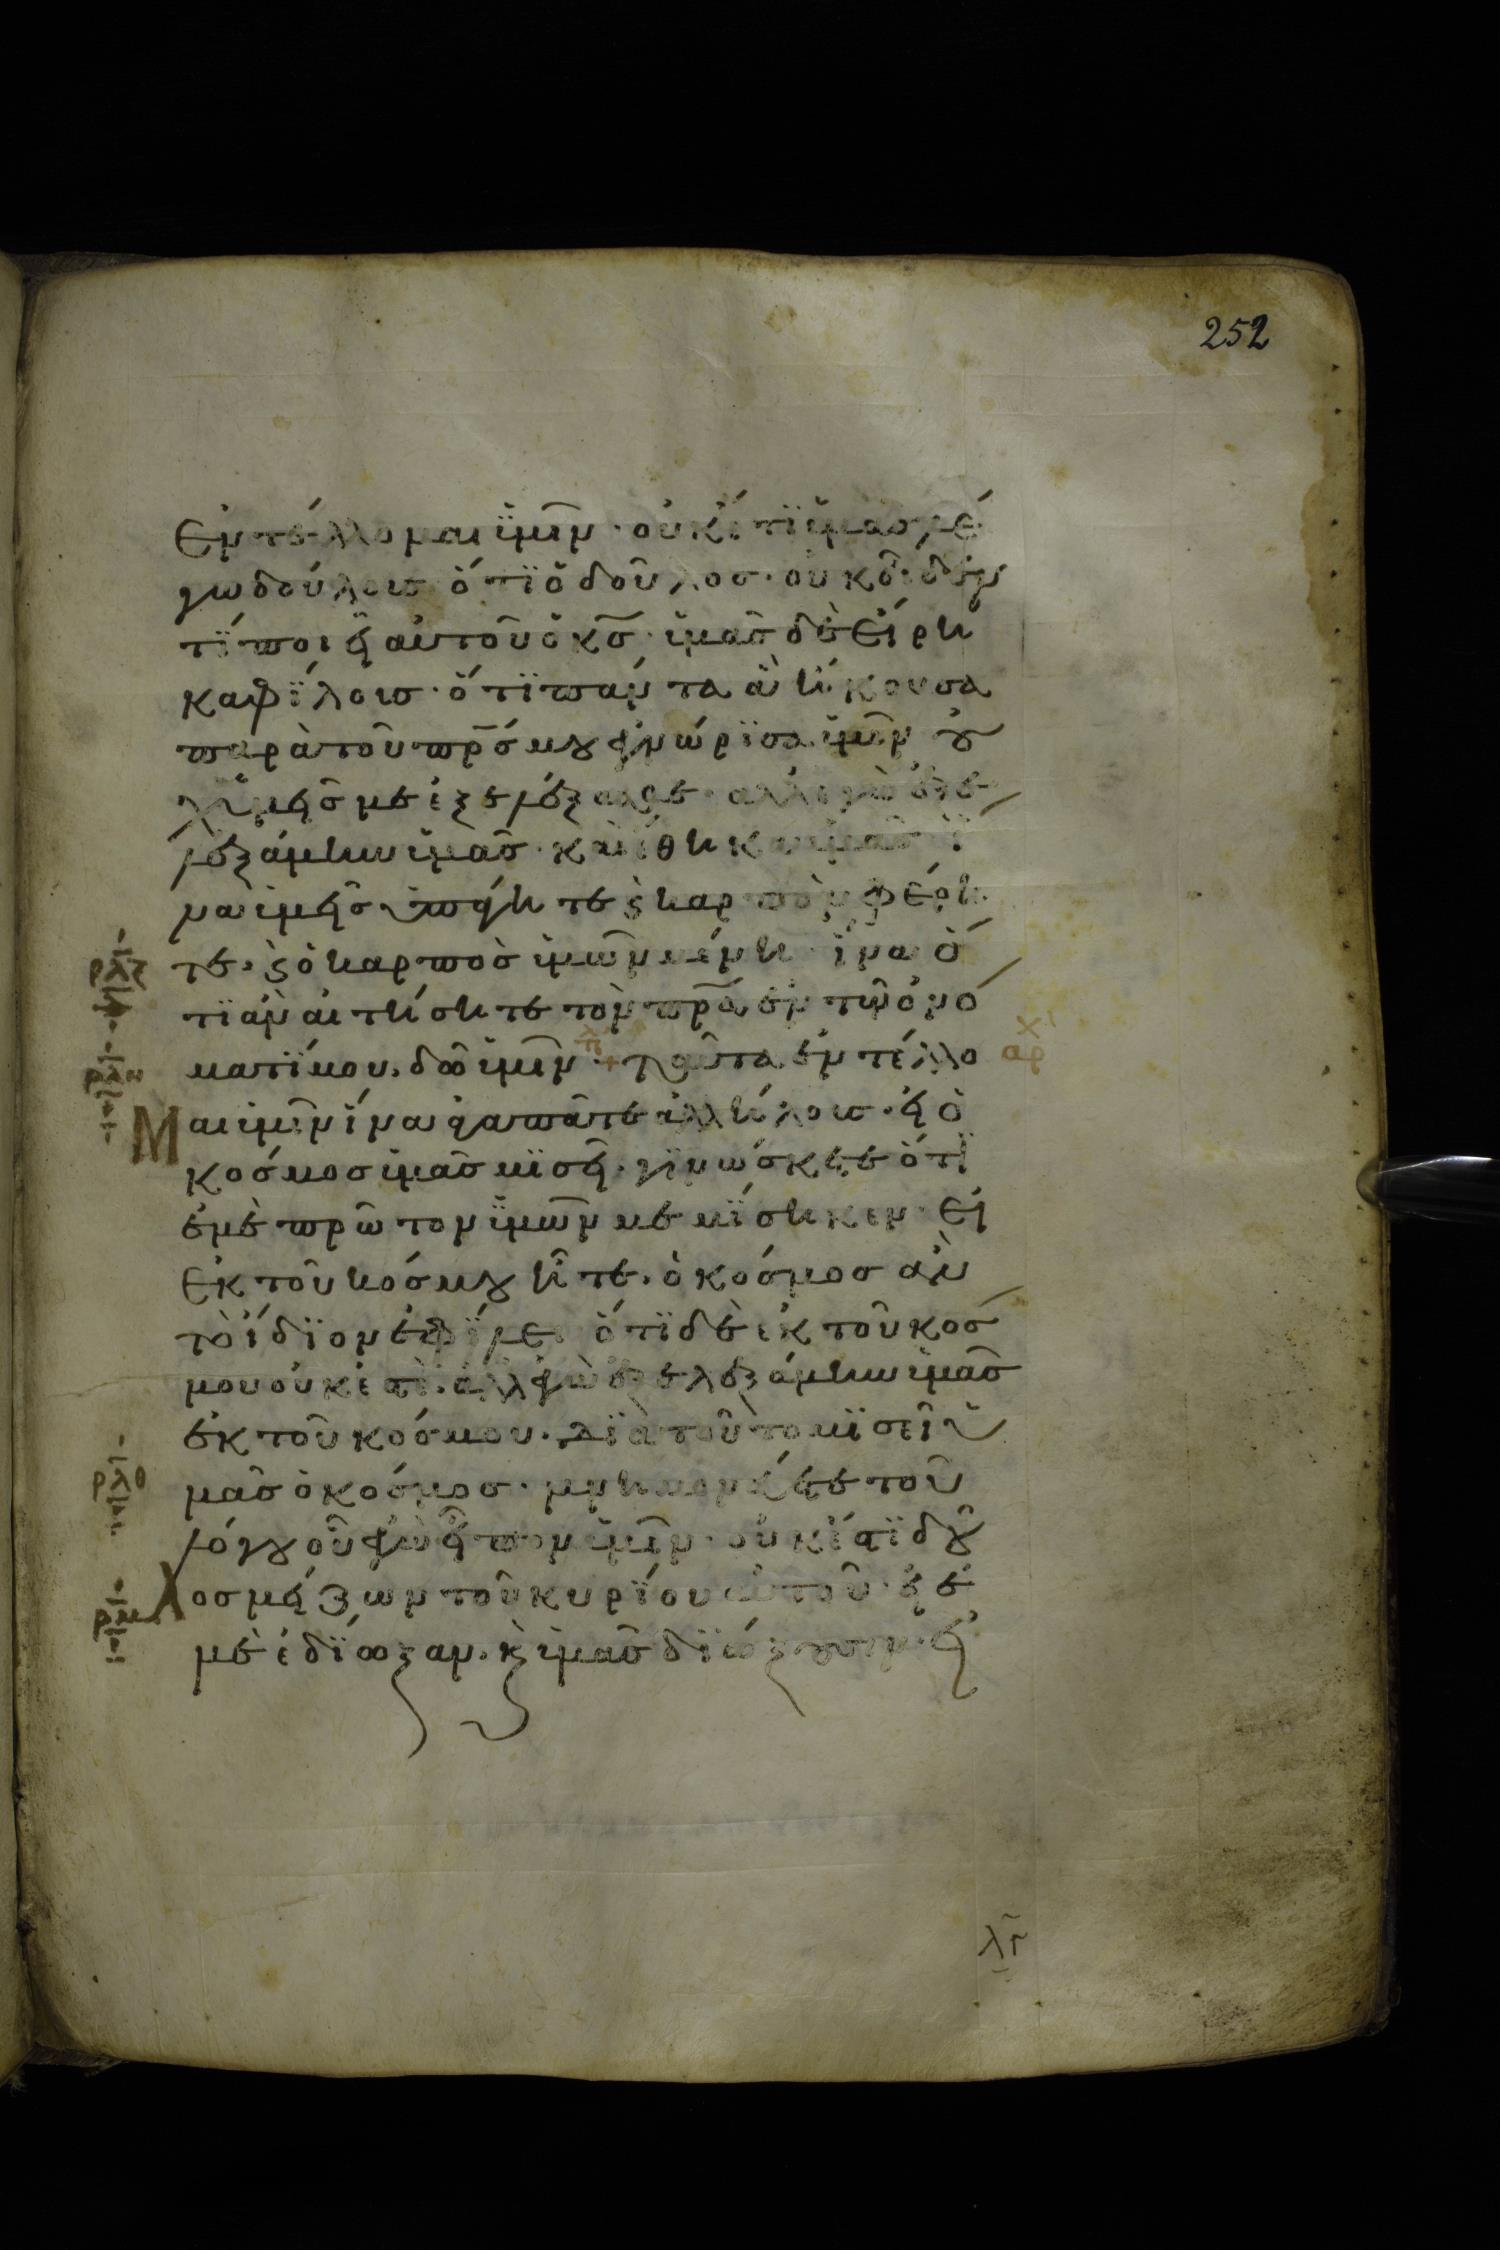 252
ἐντέλλομαι ὑμῖν · οὐκέτι ὑμᾶς λέ
γω δούλοις ὅτι ὁ δοῦλος · οὐκ οἶδεν
τί ποιεῖ αὐτοῦ ὁ κ̅ς̅ · ὑμᾶς δὲ εἴρη
κα φίλοις · ὅτι πάντα ἃ ἤκουσα
παρὰ τοῦ πρ̅ς̅ μου ἐγνώρισα ὑμῖν οὐ
χ ὑμεῖς με ἐξελέξασθε · ἀλλ ἐγὼ ἐξε
λεξάμην ὑμᾶς · καὶ ἔθηκα ὑμᾶς ἵ
να ὑμεῖς ὑπάγητε ϗ καρπὸν φέρη
τε · ϗ ὁ καρπὸς ὑμῶν μένη · ἵνα ὅ
ρλζ
τι ἂν αἰτήσητε τὸν πρ̅α̅ ἐν τῷ ὀνό
ματί μου · δῶ ὑμῖν · + ταῦτα ἐντέλλο
αρχ
ρλη
Μαι ὑμῖν ἵνα ἀγαπᾶτε ἀλλήλοις · εἰ ὁ
κόσμος ὑμᾶς μισεῖ · γινώσκετε ὅτι
ἐμὲ πρῶτον ὑμῶν μεμίσηκεν · εἰ
ἐκ τοῦ κόσμου ἦτε · ὁ κόσμος ἂν
τὸ ἴδιον ἐφίλει ὅτι δὲ ἐκ τοῦ κόσ
μου οὐκ ἐστὲ · ἀλλ ἐγὼ ἐξελεξάμην ὑμᾶς
ἐκ τοῦ κόσμου · διὰ τοῦτο μισεῖ ὑ
ρλθ
μᾶς ὁ κόσμος · μνημονεύετε τοῦ
λόγου οὗ ἐγὼ εἶπον ὑμῖν · οὐκ ἔστι δοῦ
ρμ
λος μείζων τοῦ κυρίου αὐτοῦ · εἰ ἐ
μὲ ἐδίωξαν · ϗ ὑμᾶς διώξουσιν · εἰ
λγ